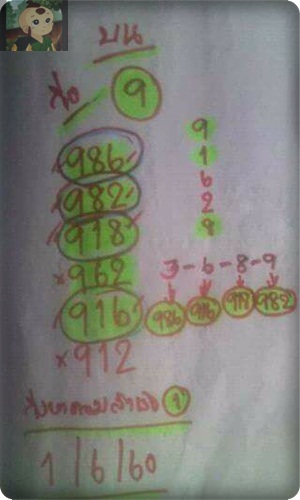 บน
วิ่ง 9
986
982
918
× 962
916
× 912
9
1
6
2
9
3 - 6 - 8 - 9
986 916 918 982
1
1/6/60